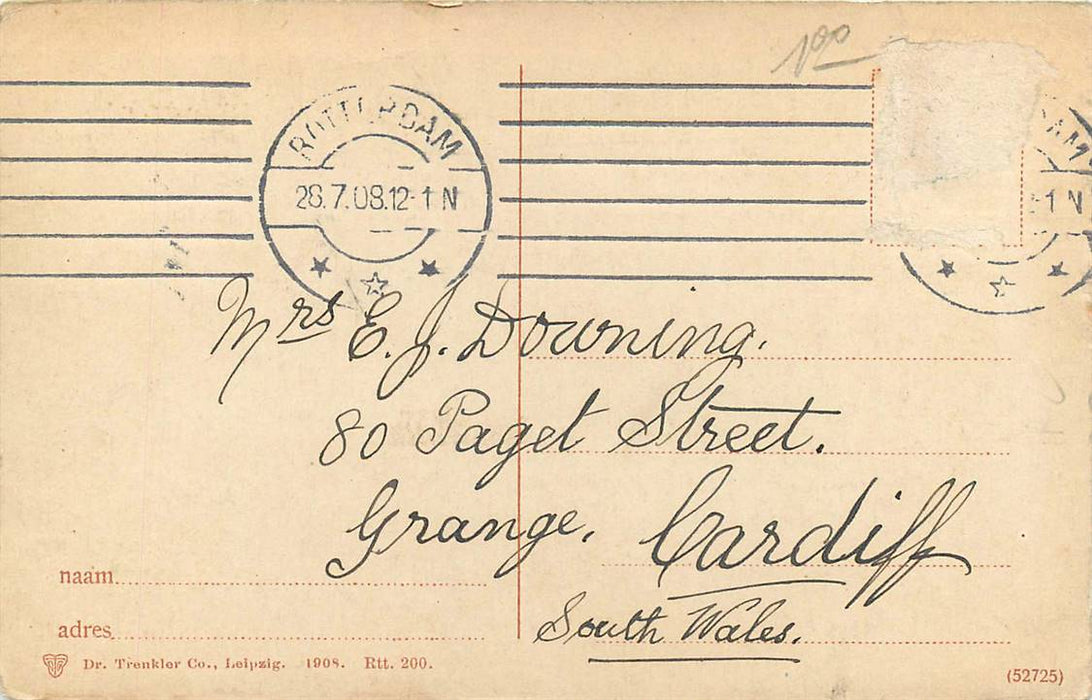 100
ROTTERDAM
28.7.08.12-1 N
DAM
-1 N
Mrs E. J. Downing.
80 Paget Street.
Grange. Cardiff
South Wales.
naam
adres
Dr. Trenkler Co., Leipzig. 1908. Rtt. 200.
(52725)